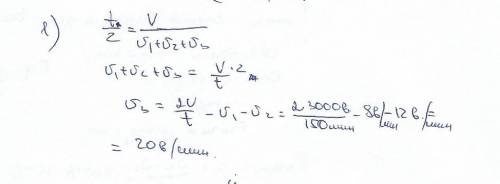 1) t/2 = V/(υ₁+υ₂+υ₃)
υ₁+υ₂+υ₃ = V/t · 2
υ₃ = 2V/t − υ₁ − υ₂ = 2·3000в/150мин − 8в/мин − 12в/мин =
= 20в/мин.